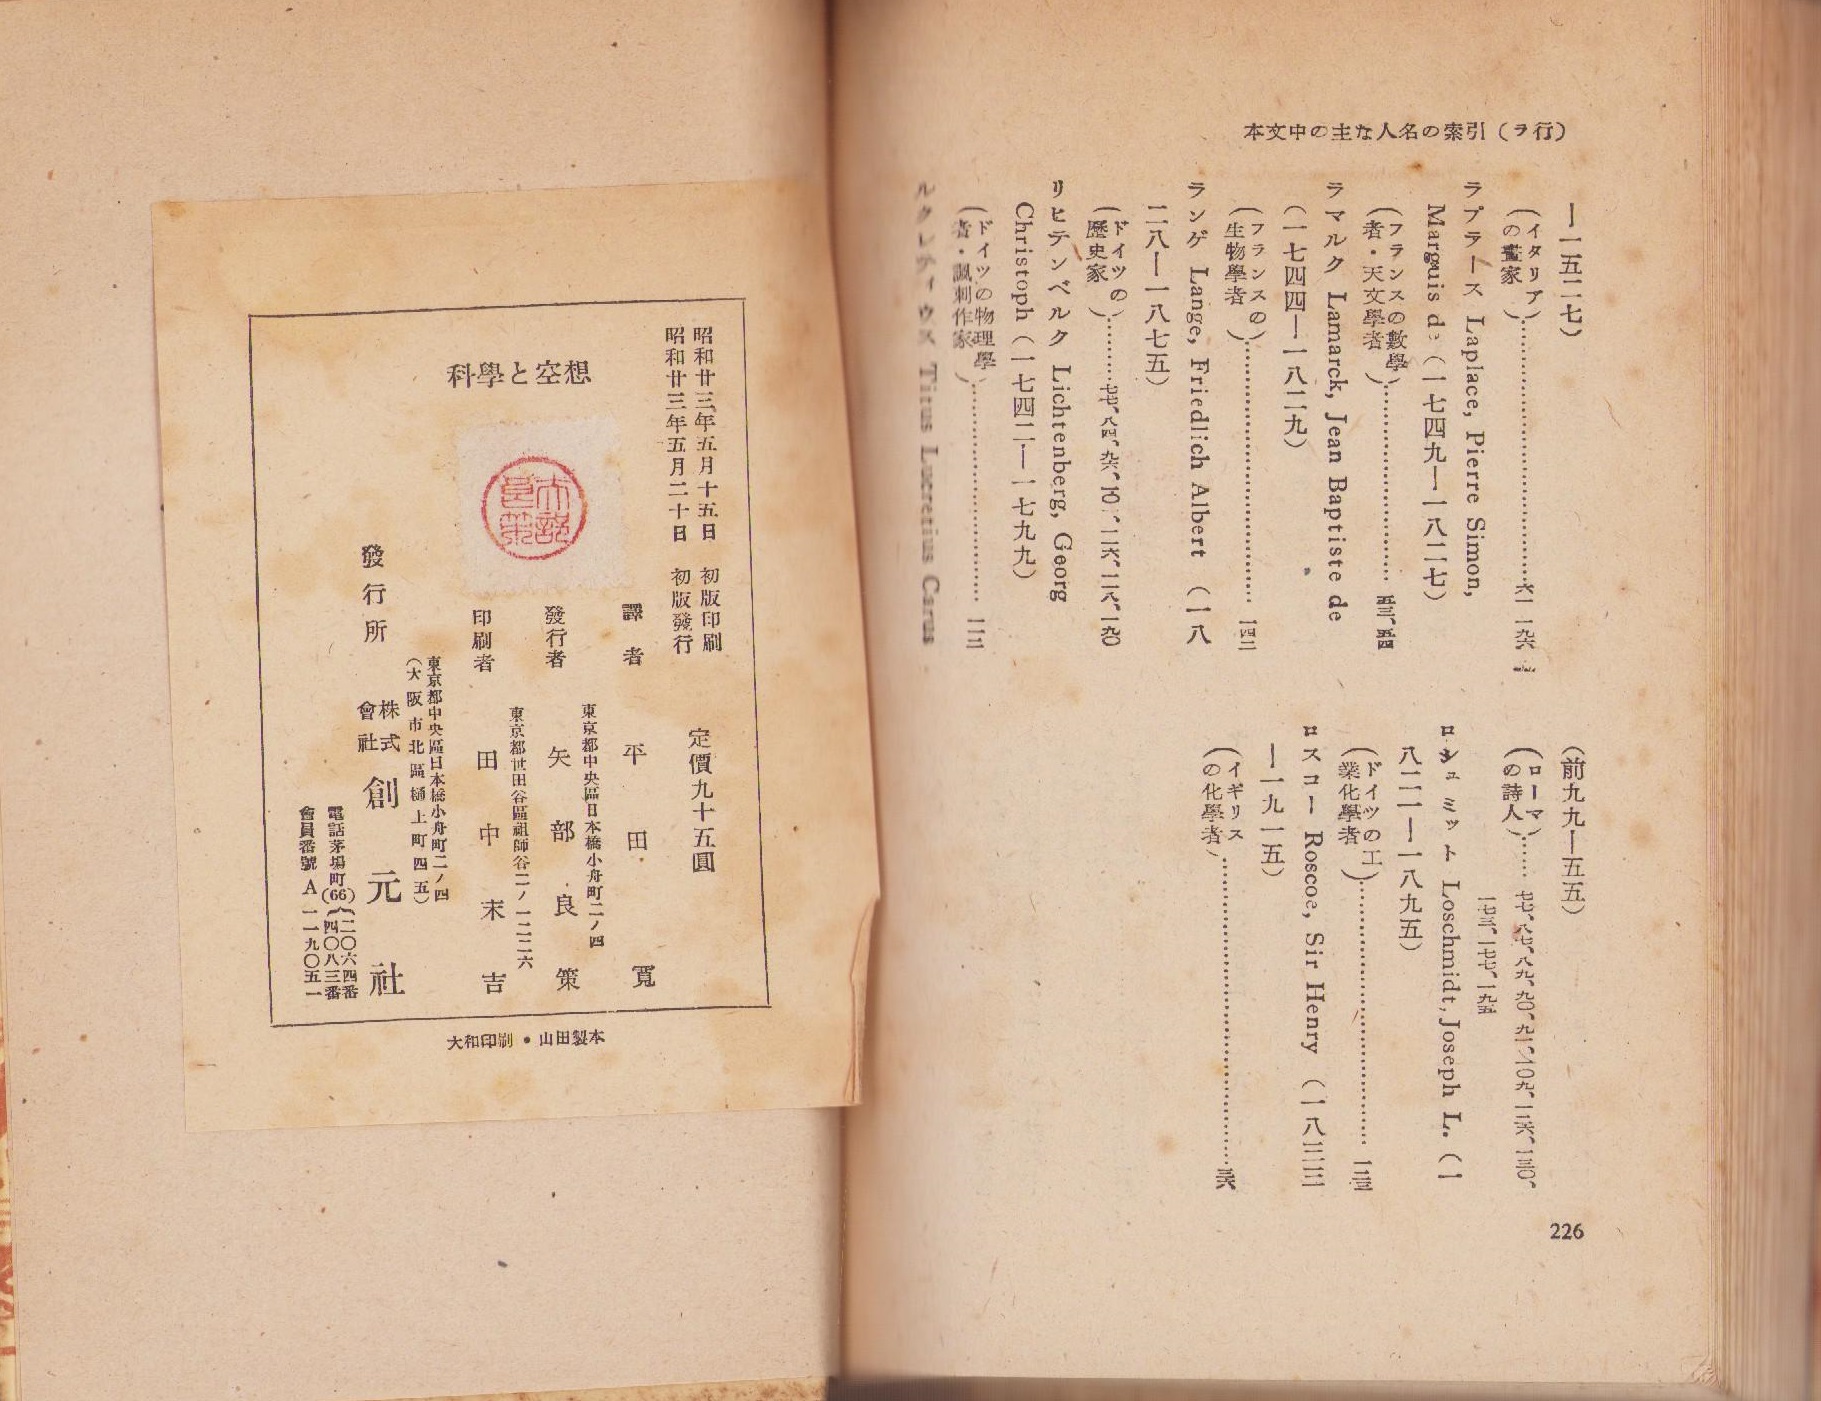 本文中の主な人名の索引（ラ行）
―一五二七）
（イタリア
の畫家）
ラプラース Laplace, Pierre Simon,
Marguis de（一七四九―一八二七）
（フランスの數學
者・天文學者）
ラマルク Lamarck, Jean Baptiste de
（一七四四―一八二九）
（フランスの
生物學者）
ランゲ Lange, Friedlich Albert （一八
二八―一八七五）
（ドイツの
歷史家）
リヒテンベルク Lichtenberg, Georg
Christoph（一七四二―一七九九）
（ドイツの物理學
者・諷刺作家）
Titus Lucretius Carus
（前九九―五五）
（ローマ
の詩人）
ロシュミット Loschmidt, Joseph L.（一
八二一―一八九五）
（ドイツの工
業化學者）
ロスコー Roscoe, Sir Henry （一八三三
―一九一五）
（イギリス
の化學者）
226
昭和廿三年五月十五日 初版印刷
昭和廿三年五月二十日 初版發行
定價九十五圓
科學と空想
譯者 平田寬
東京都中央區日本橋小舟町二ノ四
發行者 矢部良策
東京都世田谷區祖師谷二ノ一二二六
印刷者 田中末吉
東京都中央區日本橋小舟町二ノ四
（大阪市北區樋上町四五）
發行所 株式會社 創元社
電話茅場町(66){二〇六四番
四〇八三番
會員番號A一一九〇五一
大和印刷・山田製本